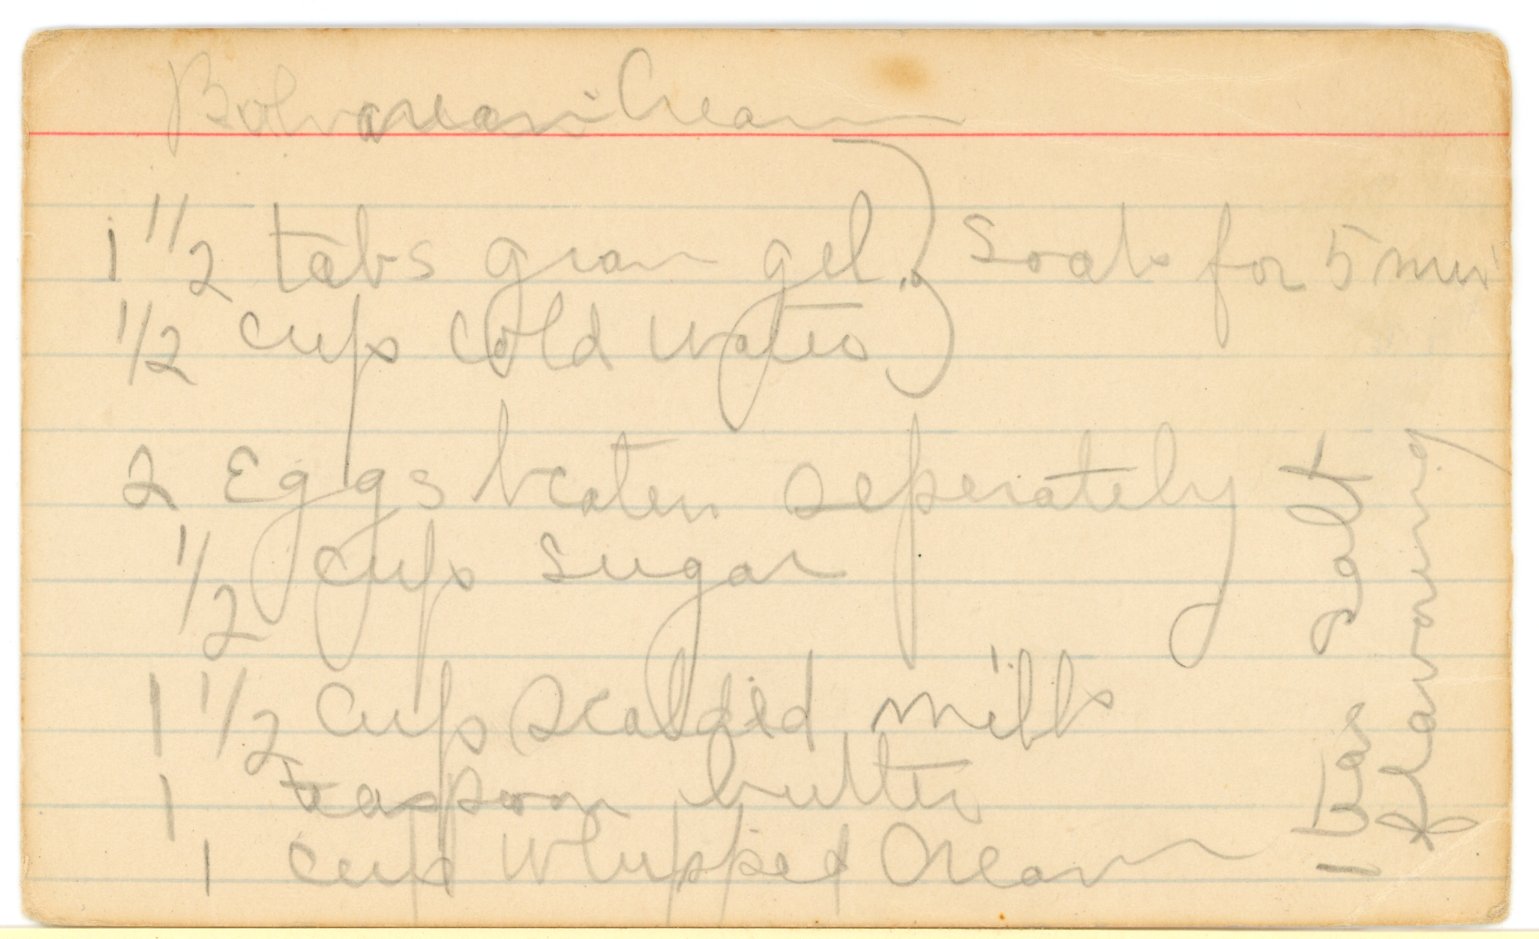 Bolvarean Cream
1 1/2 tabs gran gel.) Soak for 5 min
1/2 cup cold water
2 Eggs beaten seperately
1/2 cup sugar
1 1/2 cup scalded milk
1 teaspoon butter
1 cup whipped Cream
salt
Flavoring